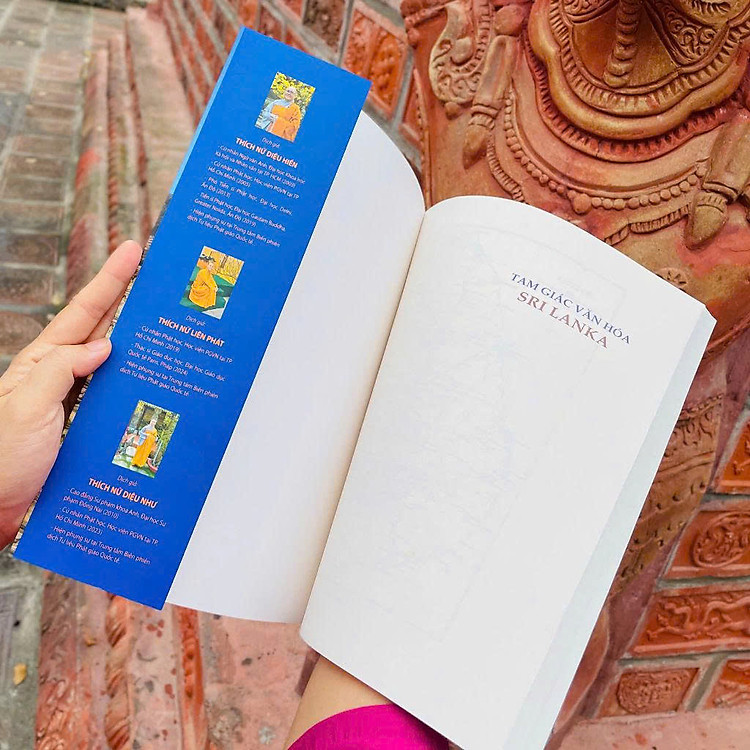 Dịch giả:
THÍCH NỮ DIỆU HIỀN
- Cử nhân Ngữ văn Anh, Đại học Khoa học
Xã hội và Nhân văn tại TP HCM (2005)
- Cử nhân Phật học, Học viện PGVN tại TP
Hồ Chí Minh (2005)
- Phó Tiến sĩ Phật học, Đại học Delhi,
Ấn Độ (2013)
- Tiến sĩ Phật học, Đại học Gautam Buddha,
Greater Noida, Ấn Độ (2019)
- Hiện phụng sự tại Trung tâm Biên phiên
dịch Tư liệu Phật giáo Quốc tế
Dịch giả:
THÍCH NỮ LIÊN PHÁT
- Cử nhân Phật học, Học viện PGVN tại TP
Hồ Chí Minh (2019)
- Thạc sĩ Giáo dục học, Đại học Giáo dục
Quốc tế Paris, Pháp (2024)
- Hiện phụng sự tại Trung tâm Biên phiên
dịch Tư liệu Phật giáo Quốc tế
Dịch giả:
THÍCH NỮ DIỆU NHƯ
- Cao đẳng Sư phạm khoa Anh, Đại học Sư
phạm Đồng Nai (2010)
- Cử nhân Phật học, Học viện PGVN tại TP
Hồ Chí Minh (2023)
- Hiện phụng sự tại Trung tâm Biên phiên
dịch Tư liệu Phật giáo Quốc tế
TAM GIÁC VĂN HÓA
SRI LANKA